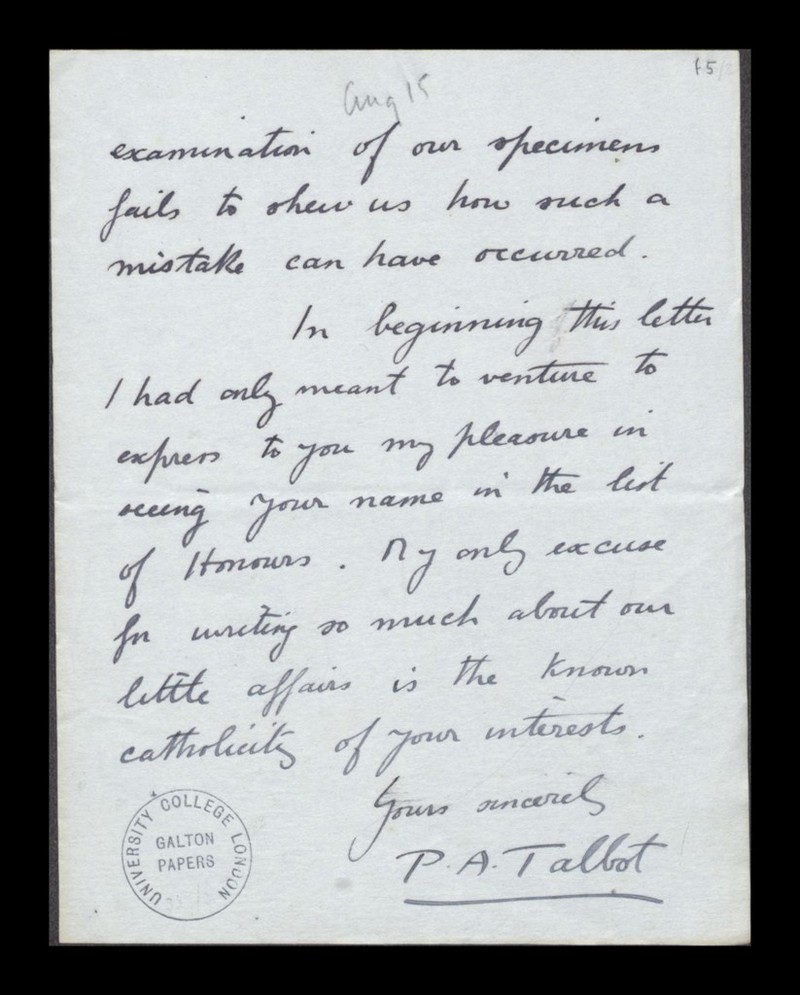 f5
Aug 15
examination of our specimens
fails to shew us how such a
mistake can have occurred.
In beginning this letter
I had only meant to venture to
express to you my pleasure in
seeing your name in the list
of Honours. My only excuse
for writing so much about our
little affairs is the known
catholicity of your interests.
Yours sincerely
P. A. Talbot
UNIVERSITY COLLEGE LONDON
GALTON
PAPERS